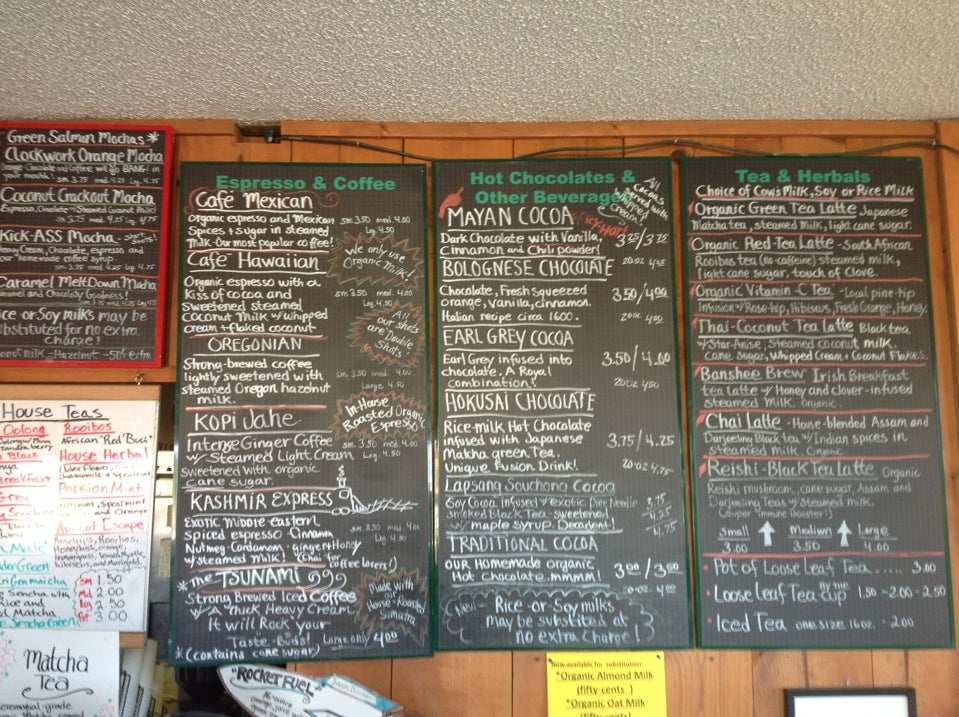 Green Salmon Mochas *
Clockwork Orange Mocha
Chocolate and Coffee will go BANG! in
your mouth! sm. 3.75 med. 4.25 Lg. 4.75
Coconut Crackout Mocha
Espresso, Chocolate + Steamed Coconut Milk!
sm. 3.75 med. 4.25 Lg. 4.75
Kick-ASS Mocha
Heavy Cream, Chocolate, espresso and
our homemade coffee syrup.
sm. 3.75 med. 4.25 Lg. 4.75
Caramel MeltDown Mocha
Caramel and Chocolaty Goodness!
sm. 3.75 med. 4.25 Lg. 4.75
Rice-or-Soy milks may be
substituted for no extra
charge!
Coconut milk - Hazelnut - 50¢ extra
House Teas
Oolong
Rooibos
African "Red Bush"
House Herbal
Persian Mint
Apricot Escape
sm 1.50
Md 2.00
Lg 2.50
Pot 3.00
Matcha
Tea
ceremonial-grade
Espresso & Coffee
Café Mexican
Organic espresso and Mexican
Spices + sugar in steamed
milk. Our most popular coffee!
sm. 3.50 med. 4.00
Lg. 4.50
We only use
Organic Milk!
Café Hawaiian
Organic espresso with a
Kiss of cocoa and
sweetened steamed
Coconut Milk w/ whipped
cream + flaked coconut
sm 3.50 med. 4.00
Lg. 4.50
All
our shots
are Double
Shots!
OREGONIAN
Strong-brewed coffee
lightly sweetened with
steamed Oregon hazelnut
milk.
sm 3.50 med. 4.00
Large 4.50
In-House
Roasted Organic
Espresso
Kopi Jahe
Intense Ginger Coffee
w/ Steamed Light Cream
sweetened with organic
cane sugar.
sm. 3.50 med. 4.00
Lg. 4.50
KASHMIR EXPRESS
Exotic Middle eastern
spiced espresso - Cinnamon
Nutmeg - Cardamom - ginger + Honey
w/ steamed milk. (Chai for
coffee lovers!)
sm. 3.50 med. 4.00
Lg. 4.50
* the TSUNAMI
Strong Brewed Iced Coffee
w/ A thick Heavy Cream
It will Rock your
Taste-Buds! Large only 4.00
* (contains cane sugar)
Made with
House-Roasted
Sumatra
"ROCKET FUEL"
Hot Chocolates &
Other Beverages
All
Cocoas
topped with
Whipped
Cream!
MAYAN COCOA
Dark Chocolate with Vanilla,
Cinnamon and Chili powder!
3.25/3.75
20 oz 4.25
BOLOGNESE CHOCOLATE
Chocolate, Fresh Squeezed
orange, vanilla, cinnamon.
Italian recipe circa 1600.
3.50/4.00
20oz 4.50
EARL GREY COCOA
Earl Grey infused into
chocolate. A Royal
combination!
3.50/4.00
20oz 4.50
HOKUSAI CHOCOLATE
Rice-milk Hot Chocolate
infused with Japanese
Matcha green Tea.
Unique fusion Drink!
3.75/4.25
20oz 4.75
Lapsang Souchong Cocoa
Soy Cocoa infused w/ exotic Pine Needle
Smoked Black Tea - sweetened
w/ maple syrup. Decadent!
3.75
4.25
4.75
TRADITIONAL COCOA
OUR Homemade organic
Hot Chocolate.mmmm!
3.00/3.50
20oz. 4.00
New! - Rice-or-Soy milks
may be substituted at
no extra charge!
Now available for substitution
*Organic Almond Milk
(fifty cents)
*Organic Oat Milk
(fifty cents)
Tea & Herbals
Choice of Cow's Milk, Soy or Rice Milk
Organic Green Tea Latte Japanese
Matcha tea, steamed milk, light cane sugar.
Organic Red-Tea Latte - South African
Rooibos tea (no caffeine) steamed milk,
light cane sugar, touch of Clove.
Organic Vitamin-C Tea - Local pine-tip
Infusion w/ Rose-hip, Hibiscus, Fresh Orange, Honey.
Thai-Coconut Tea Latte Black tea
w/ Star-Anise, Steamed coconut milk,
cane sugar, Whipped Cream + Coconut Flakes.
Banshee Brew Irish Breakfast
tea Latte w/ Honey and Clover-infused
steamed milk. Organic.
Chai Latte - House-blended Assam and
Darjeeling Black tea w/ Indian spices in
steamed milk. Organic
Reishi-Black Tea Latte Organic
Reishi mushroom, cane sugar, Assam and
Darjeeling Teas w/ steamed milk.
(Super "immune Booster!)
Small ↑ Medium ↑ Large
3.00 3.50 4.00
• Pot of Loose Leaf Tea ..... 3.00
• Loose Leaf Tea by the cup 1.50 - 2.00 - 2.50
• Iced Tea one size 16oz. - 2.00